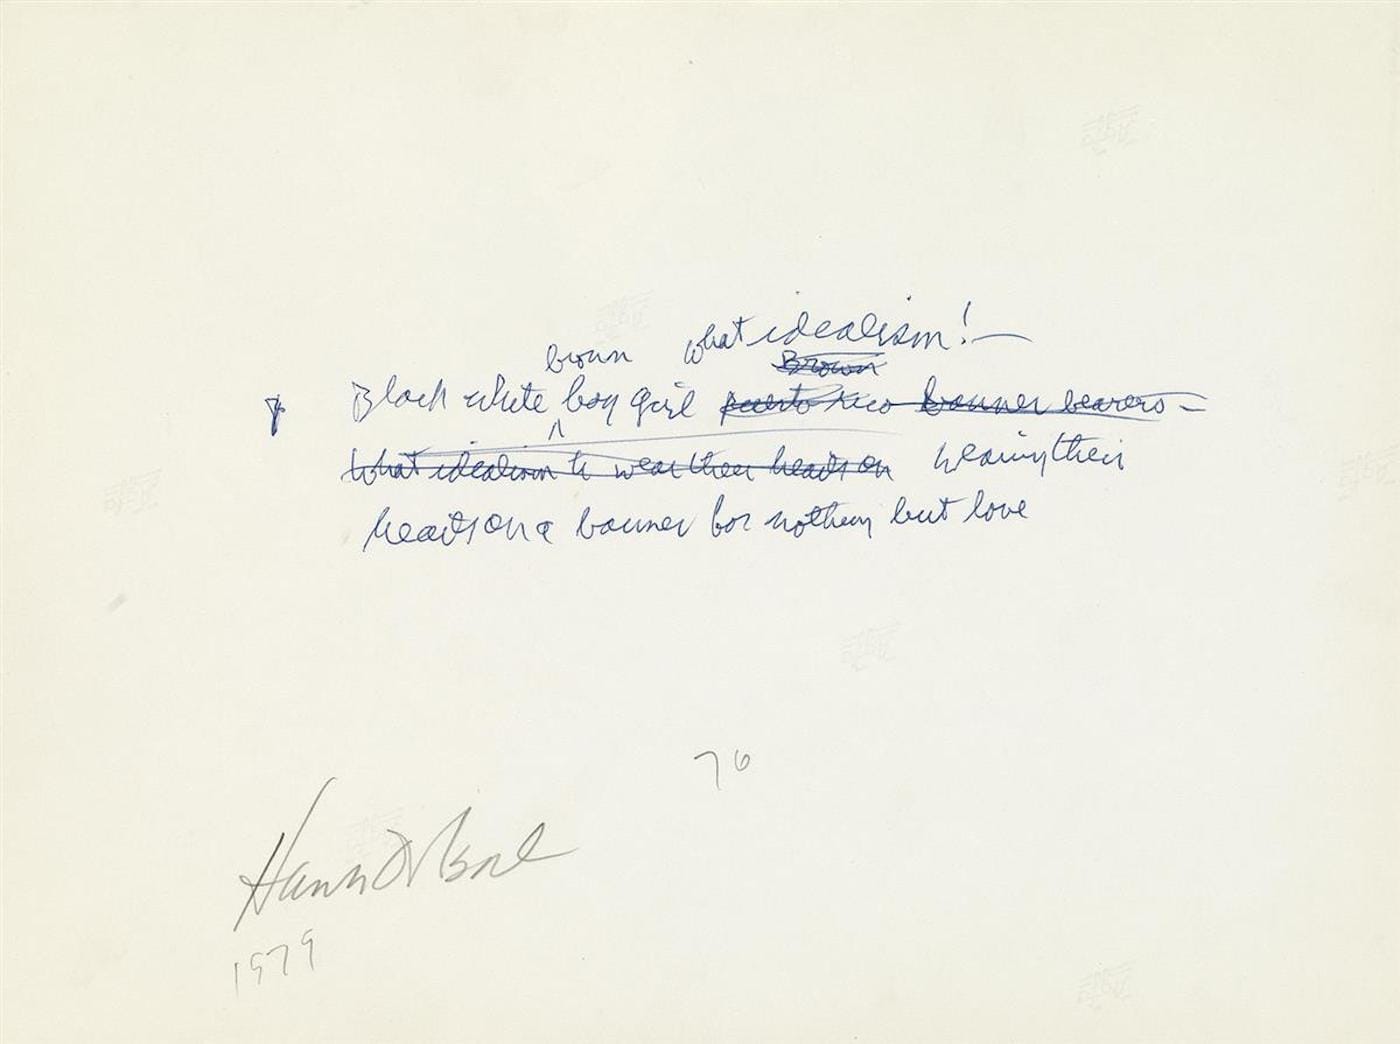 brown what idealism! —
Brown
Black white boy girl puerto rico banner bearers –
What idealism to wear their hearts on wearing their
hearts on a banner for nothing but love
76
1979